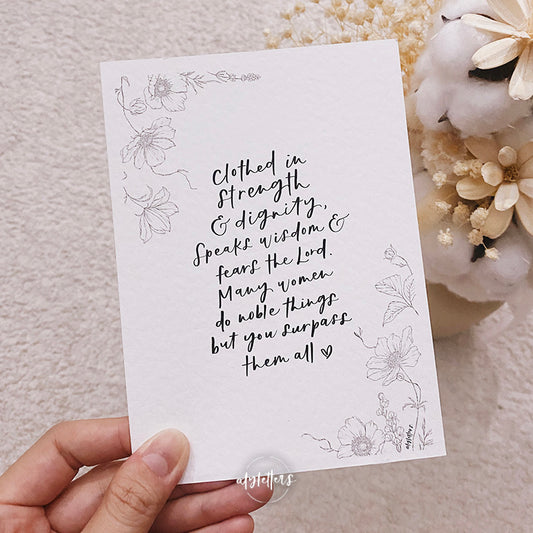 Clothed in
strength
& dignity,
Speaks wisdom &
fears the Lord.
Many women
do noble things
but you surpass
them all ♡
atyletters